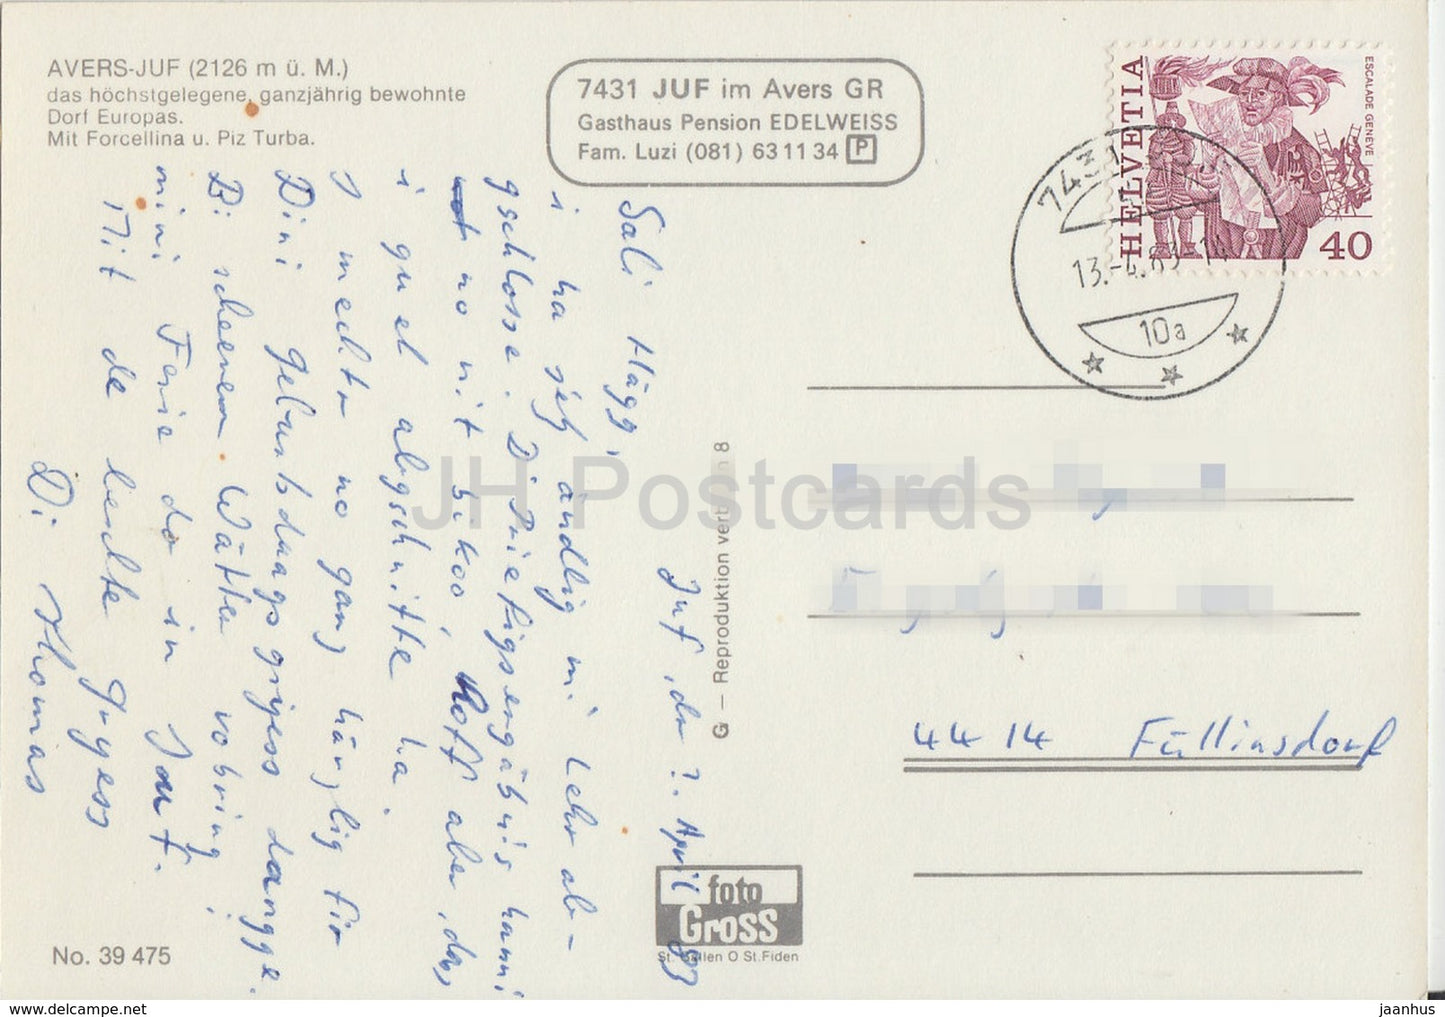 AVERS-JUF (2126 m ü. M.)
das höchstgelegene, ganzjährig bewohnte
Dorf Europas.
Mit Forcellina u. Piz Turba.
7431 JUF im Avers GR
Gasthaus Pension EDELWEISS
Fam. Luzi (081) 63 11 34 P
HELVETIA
ESCALADE GENEVE
40
7431
13.-4.83-14
10a
Juf, dr ?. April 83
Sali Häggi,
i ha jetz ändlig mi Lehr ab-
gschlosse. D Priefigsergäbnis hanni
no nit bikoo, hoff aber, das
i guet abgschnitte ha.
I mecht no ganz härzlig fir
Dini Geburtsdaagsgriess dangge.
Bi scheenem Wätter vobring i
mini Ferie do in Juf.
Mit de beschte Griess
Di Thomas
G — Reproduktion 8
4414 Füllinsdorf
foto
Gross
St. Gallen O St.Fiden
No. 39 475
JH Postcards
jaanhus